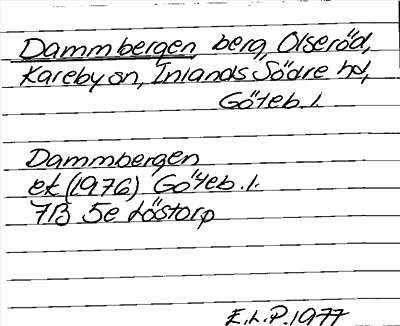 Dammbergen, berg, Olseröd,
Kareby sn, Inlands Södre hd,
Göteb. l.
Dammbergen
ek (1976) Göteb. l.
7B 5e Löstorp
E.L.P. 1977